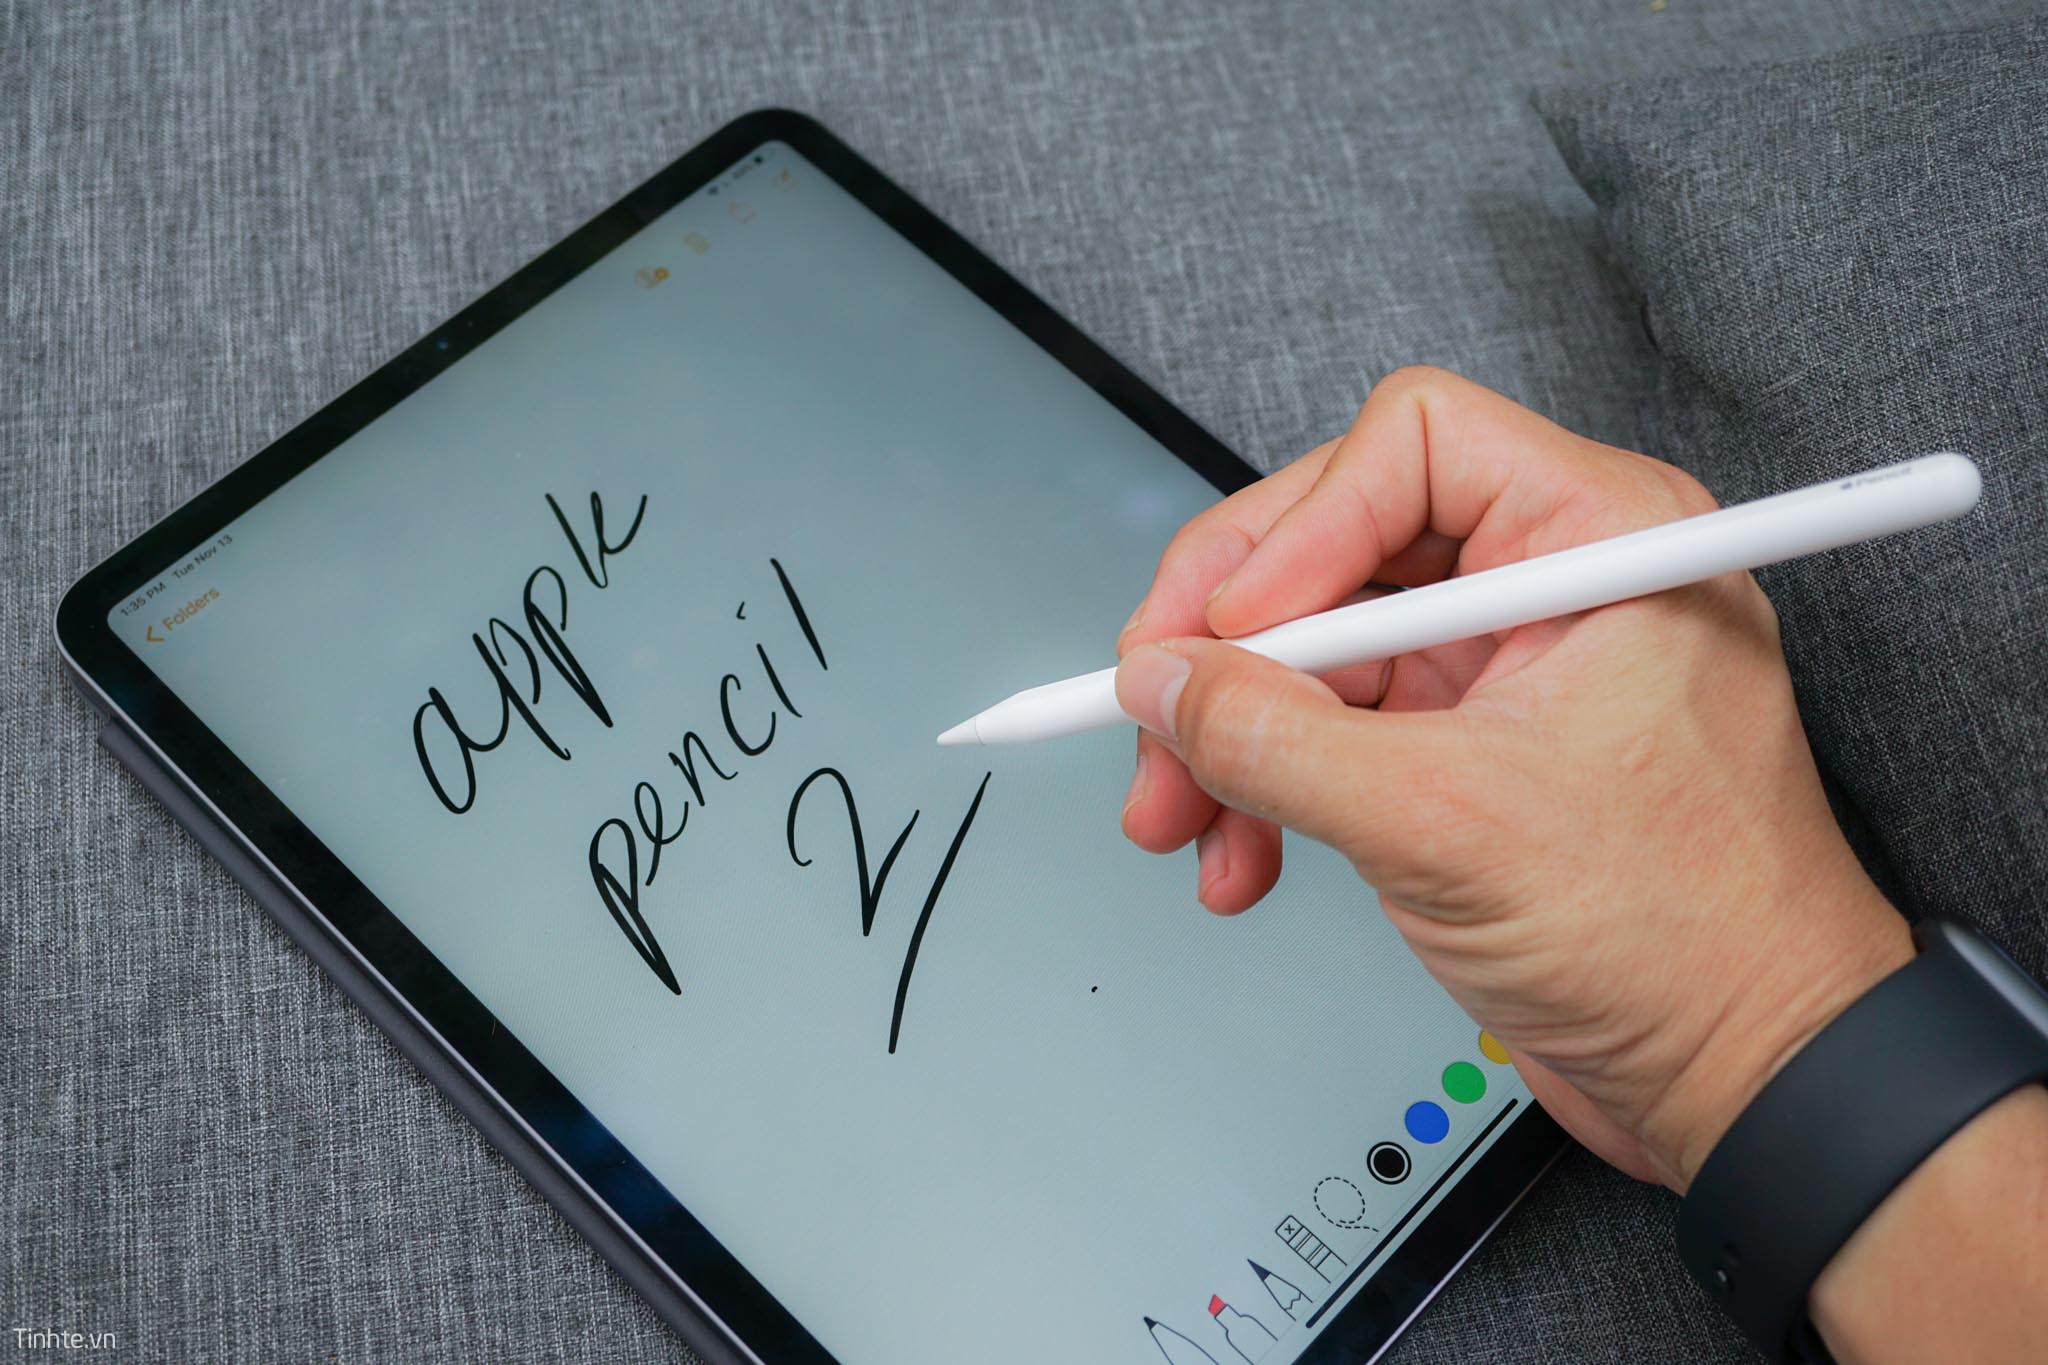 1:35 PM Tue Nov 13
Folders
apple
pencil
2
Tinhte.vn